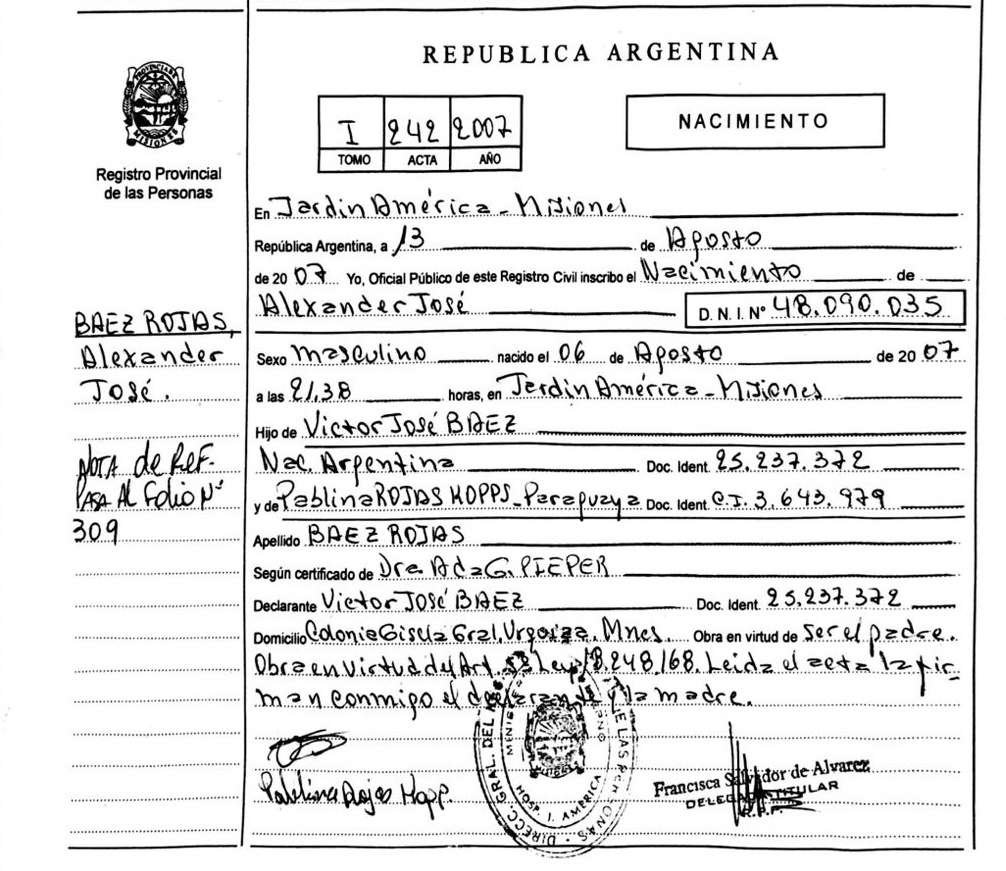 REPUBLICA ARGENTINA
PROVINCIA DE
MISIONES
Registro Provincial
de las Personas
I 242 2007
TOMO ACTA AÑO
NACIMIENTO
En Jardin América - Misiones
República Argentina, a 13 de Agosto
de 20 07 Yo, Oficial Público de este Registro Civil inscribo el Nacimiento de
Alexander José D.N.I. Nº 48.090.035
BAEZ ROJAS,
Alexander
José.
Sexo masculino nacido el 06 de Agosto de 20 07
a las 21,38 horas, en Jardin América - Misiones
Hijo de Victor José BAEZ
Nac. Argentina Doc. Ident. 25.237.372
y de Pablina ROJAS HOPPS - Paraguaya Doc. Ident. C.I. 3.643.979
NOTA de REF.
PASA AL Folio Nº
309
Apellido BAEZ ROJAS
Según certificado de Dra. Ada G. PIEPER
Declarante Victor José BAEZ Doc. Ident. 25.237.372
Domicilio Colonia Gisela Gral. Urquiza. Mnes. Obra en virtud de Ser el padre.
Obra en virtud del Art. Ley 18.248/68. Leida el acta la fir
man conmigo el declarante y la madre.
Pablina Rojas Hopp.
DIRECC. GRAL. DEL DE LAS PERSONAS
HOSP. J. AMERICA
Francisca Salvador de Alvarez
DELEGADA TITULAR
R.P.P.